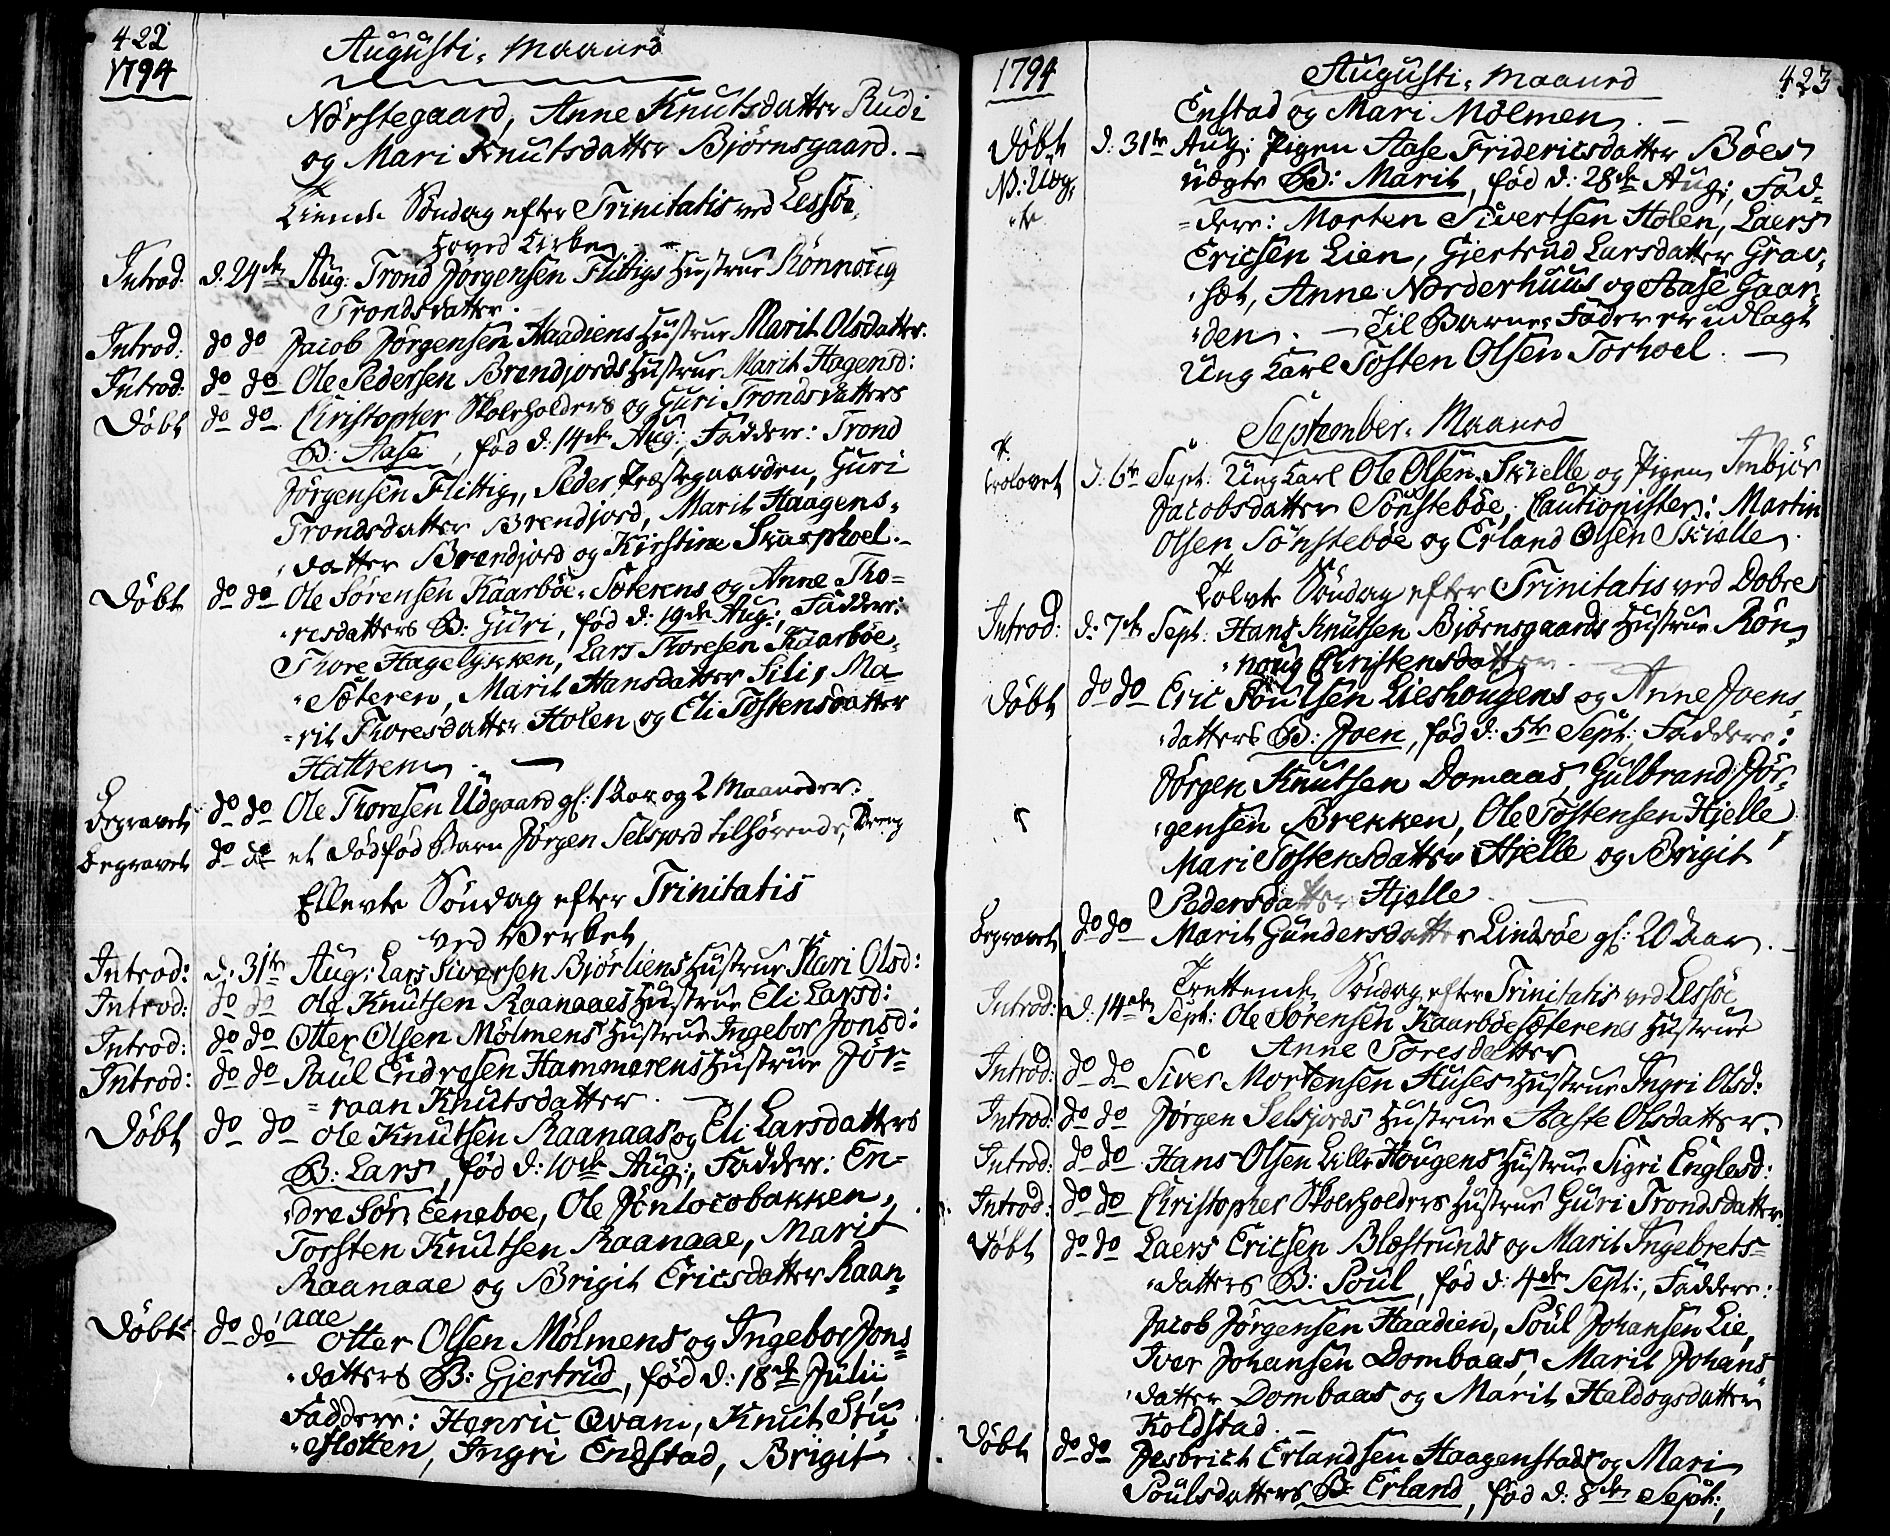 422
1794
Augusti. Maaned
Nørstegaard, Anne Knutsdatter Rudi
og Mari Knutsdatter Bjørnsgaard. –
Tiende Søndag efter Trinitatis ved Lessøe
Hoved Kirke –
Introd: d: 24de Aug: Trond Jørgensen Flittigs Hustrue Rønnoug
Trondsdatter.
Introd: do do Jacob Jørgensen Haadiens Hustrue Marit Olsdatter.
Introd: do do Ole Pedersen Brendjords Hustrue Marit Hagensd:
Døbt do do Christopher Skoleholders og Guri Trondsdatters
B: Aase, fød d: 14de Aug:, Faddere: Trond
Jørgensen Flittig, Peder Præstegaarden, Guri
Trondsdatter Brendjord, Marit Haagens-
datter Brendjord og Kirstine Skarphoel. –
Døbt do do Ole Sørensen Kaarbøe-Sæterens og Anne Tho=
=resdatters B: Guri, fød d: 19de Aug:, Faddere:
Thore Hagelykken, Lars Thoresen Kaarbøe-
Sæteren, Marit Hansdatter Lili, Ma-
=rit Thoresdatter Holen og Eli Tostensdatter
Hattrem. –
Begravet do do Ole Thoresen Udgaard gl: 1 Aar og 2 Maaneder.
Begravet do do et dødfød Barn Jørgen Selsjord tilhørende, Dreng
Ellevte Søndag efter Trinitatis
ved Verket
Introd: d: 31te Aug: Lars Siversen Bjørliens Hustrue Kari Olsd:
Introd: do do Ole Knutsen Raanaaes Hustrue Eli Larsd:
Introd: do do Otter Olsen Mølmens Hustrue Ingebor Jonsd:
Introd: do do Paul Endresen Hammerens Hustrue Jør-
=raan Knutsdatter. –
Døbt do do Ole Knutsen Raanaas og Eli Larsdatters
B: Lars, fød d: 10de Aug:, Faddere: En-
dre Sør Eeneboe, Ole Jøntocobakken,
Torsten Knutsen Raanaae, Marit
Raanaae og Brigit Ericsdatter Raan-
aae
Døbt do do Otter Olsen Mølmens og Ingebor Jons=
datters B: Gjertrud, fød d: 18de Julii
Faddere: Henric Qvam, Knut Stu
flotten, Ingri Endstad, Brigit
1794
Augusti. Maaned
423
Enstad og Mari Mølmen. –
Døbt d: 31te Aug: Pigen Aase Fridericsdatter Bøes
N: Uæg-
te
uægte B: Marit, fød d: 28de Aug:, Fad-
=dere: Morten Sivertsen Holen, Laers
Ericsen Lien, Gjertrud Larsdatter Grav-
sæt, Anne Nørderhuus og Aase Gaar-
den. – Til Barnefader er udlagt
Ung Karl Tosten Olsen Torhoel. –
September. Maaned
Trolovet d: 6te Sept: Ung Karl Ole Olsen Skielle og Pigen Imbjør
Jacobsdatter Sønstebøe, Cautionister: Martin
Olsen Sønstebøe og Erland Olsen Skielle.
Tolvte Søndag efter Trinitatis ved Dobre
Introd: d: 7de Sept: Hans Knutsen Bjørnsgaards Hustrue Røn-
noug Christensdatter. –
Døbt do do Eric Poulsen Lieshougens og Anne Joens-
datters B: Joen, fød d: 5te Sept:, Faddere:
Jørgen Knutsen Domaas, Gulbrand Jør-
gensen Brekken, Ole Tostensen Hjelle
Mari Tostensdatter Hjelle og Brigit
Pedersdatter Hjelle. –
Begravet do do Marit Gundersdatter Lindsøe gl: 20 Aar. –
Trettende Søndag efter Trinitatis ved Lessøe
Introd: d: 14de Sept: Ole Sørensen Kaarbøesæterens Hustrue
Anne Toresdatter
Introd: do do Siver Mortensen Huses Hustrue Ingri Olsd:
Introd: do do Jørgen Selsjords Hustrue Aaste Olsdatter.
Introd: do do Hans Olsen Lille Hougens Hustrue Sigri Englesd:
Introd: do do Christopher Skoleholders Hustrue Guri Trondsdatter
Døbt do do Laers Ericsen Blæstrunds og Marit Ingebrets=
datters B: Poul, fød d: 4de Sept:, Faddere:
Jacob Jørgensen Haadien, Poul Johansen Lie,
Iver Johansen Dombaas, Marit Johans
datter Dombaas og Marit Haldogsdatter
Koldstad. –
Døbt do do Jesbrich Erlandsen Haagenstads og Mari
Poulsdatters B: Erland, fød d: 8de Sept:,